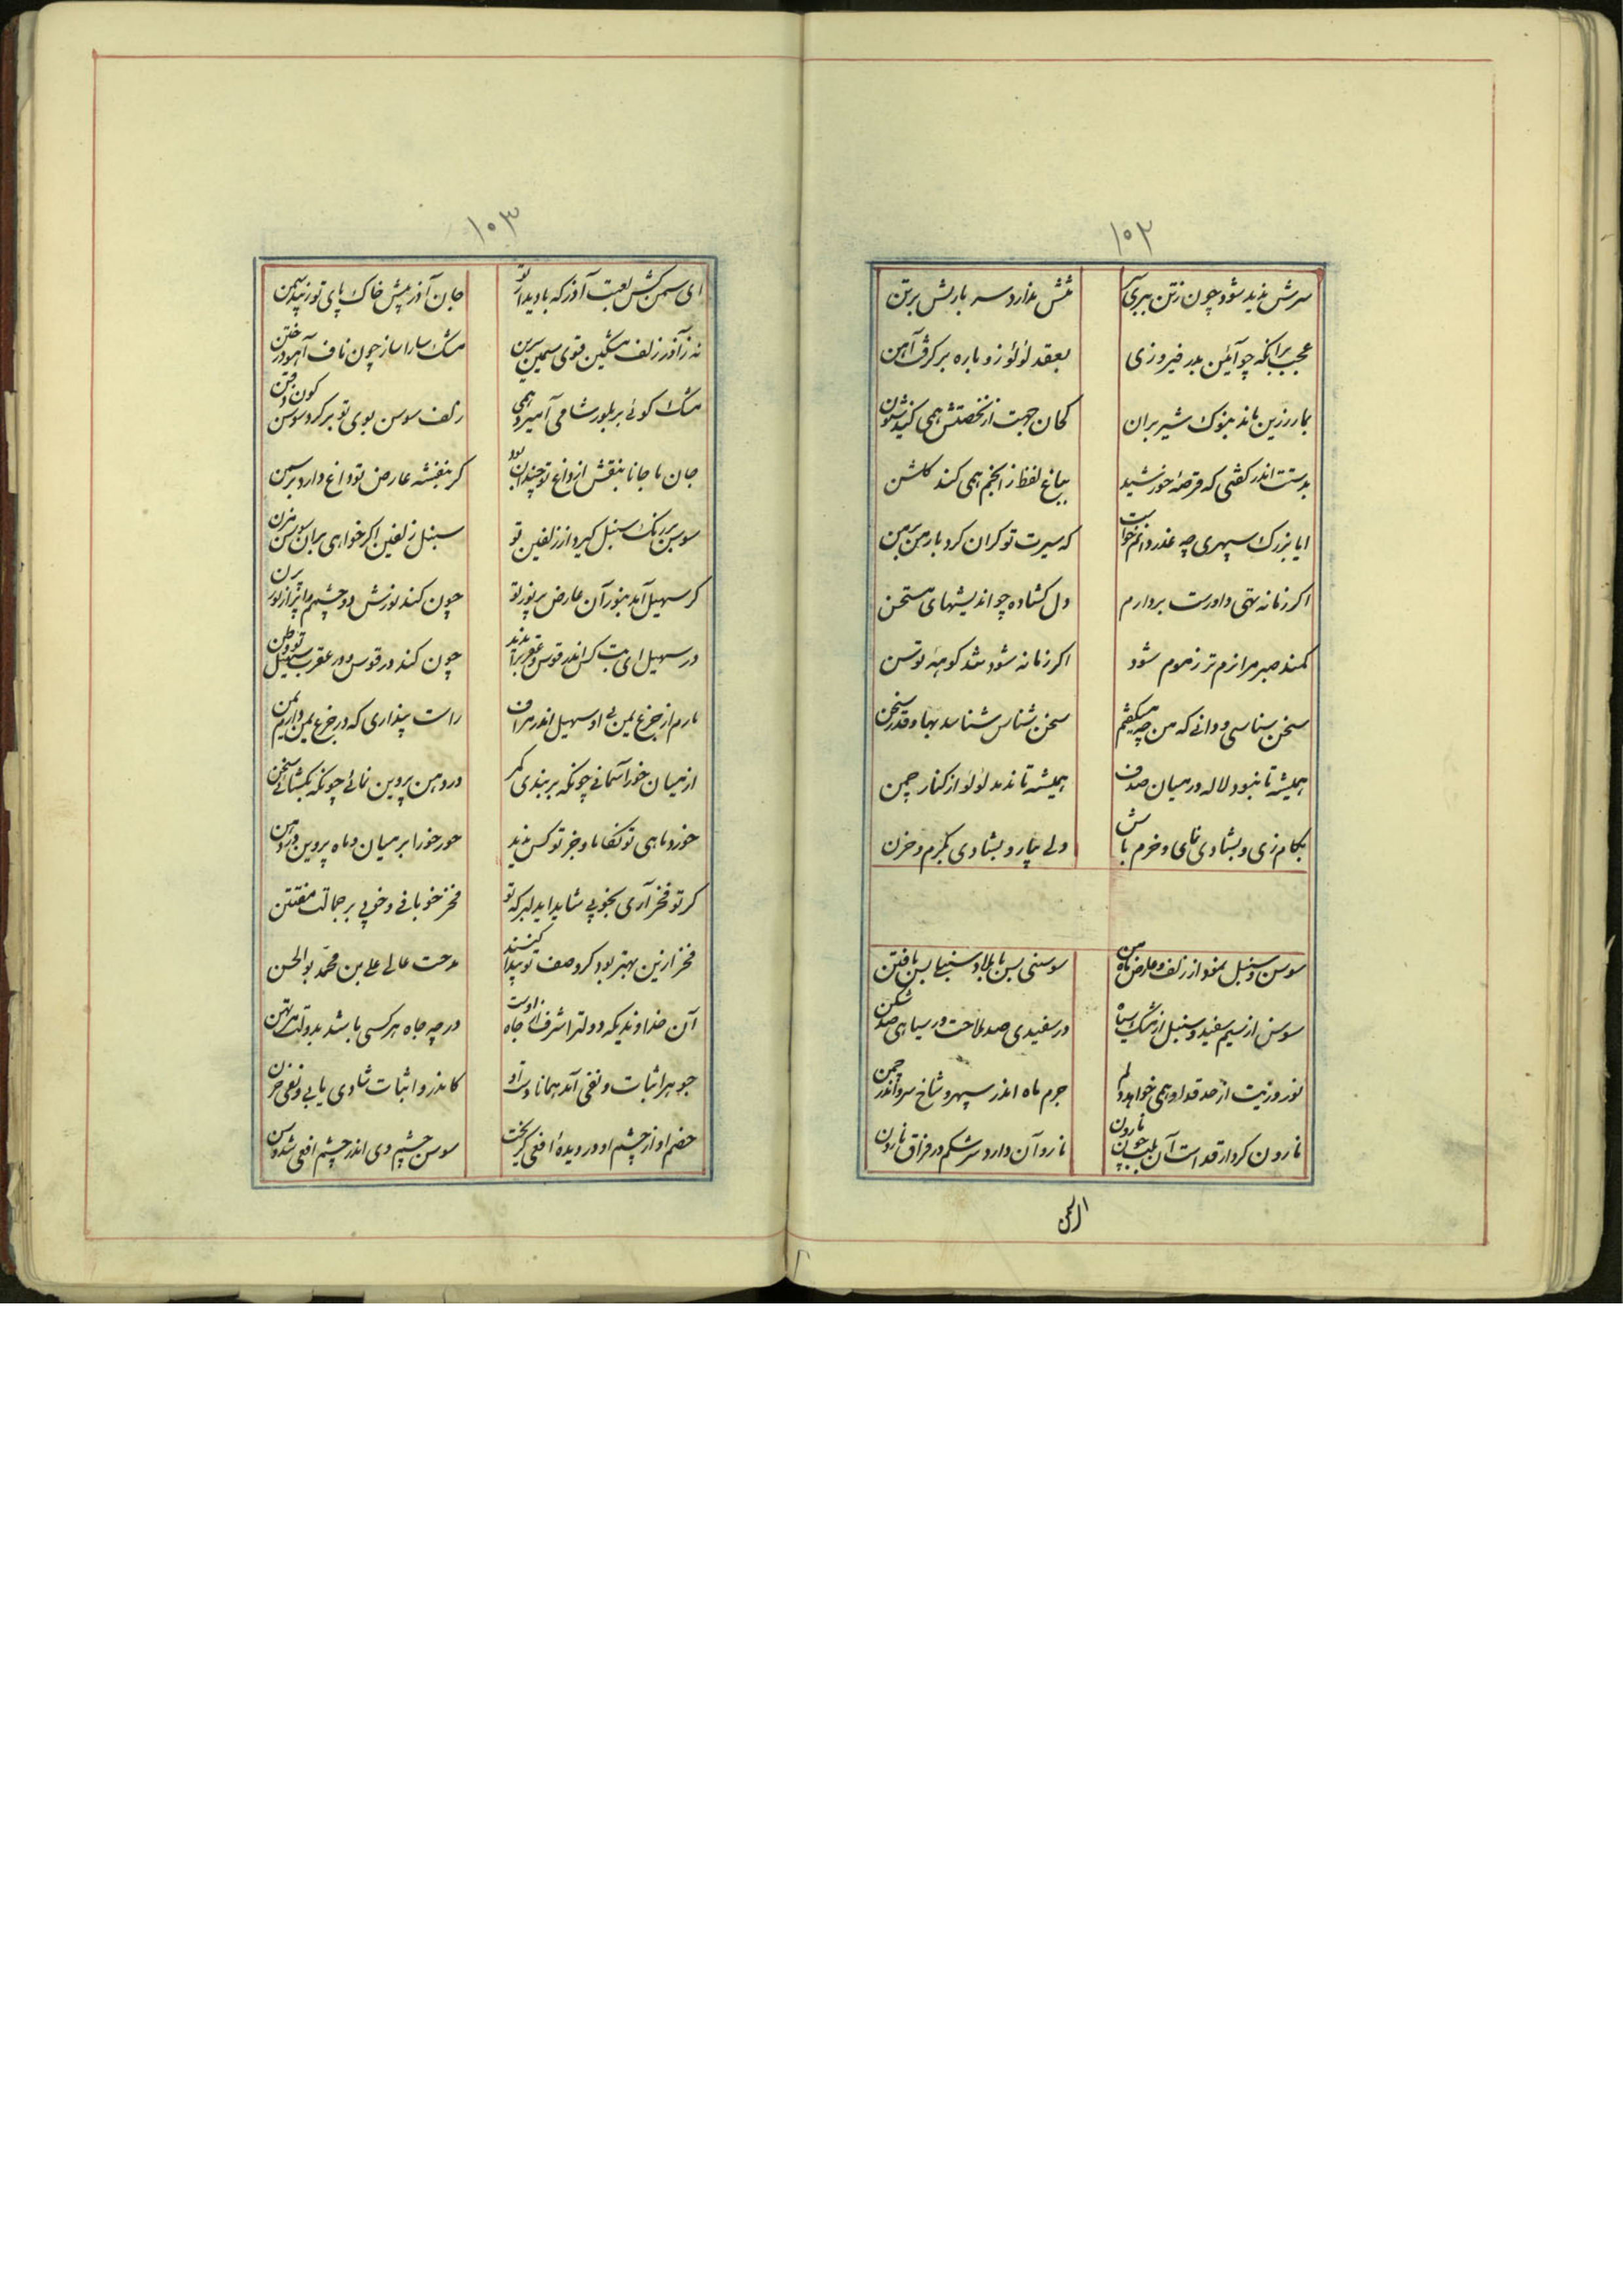 ۱۰۲
سرش پدید شود چون ز تن ببری تنش ندارد سر بارش بر تن
عجب برانکه چو آئین بدر فیروزی بعقد لؤلؤ زو باره بر کرف آهن
بمار زرین ماند بنوک شیر بران کمان جهت از تخصتش همی کند
بدستت اندر کفتی که قرصهٔ خورشید بباغ لفظ ز انجم همی کند کلشن
ایا بزرک سپهری چه عذر دانم خواست که سیرت تو کران کرد بار من بر من
اکر زمانه تهی داردت بر دارم دل کشاده چو اندیشهای مستحن
کمند صبر مرا نرم تر ز موم شود اکر زمانه شود تند کوههٔ توسن
سخن شناسی و دانی که من چه میکفتم سخن شناس شناسد بها و قدر سخن
همیشه تا نبود لاله در میان صدف همیشه تا ندمد لؤلؤ از کنار چمن
بکام زی و بشادی نمای و خرم باش ولی بیار و بشادی بکرم و حزن
سوسن و سنبل نمود از زلف و عارض ماه من سوسنی بس با بلا و سنبلی بس با فتن
سوسن از سیم سفید و سنبل از مشک سیاه در سفیدی صد ملاحت در سیاهی صد شکن
نور و زینت از خد و قد او همی خواهد دلم جرم ماه اندر سپهر و شاخ سرو اندر چمن
نارون کردار قد است آن بت چون نارون نار و آن دارد سرشکم در فراق نارون
ای سمن
۱۰۳
ای سمن کش لعبت آذر که با دیدار تو جان آذر پیش خاک پای تو زیبد ثمن
نه ز آذر زلف مشکین قوی سیمین سرین مشک سارا ساز چون ناف آهو در ختن
مشک کوئی بر بلور شامی آمیزد همی زلف سوسن بوی تو بر کرد سوسن کون ذقن
جان ما جانا بنقش از داغ تو چندان بود کر بنفشه عارض تو داغ دارد بر سمن
سوسن بر رنک سنبل کیرد از زلفین تو سنبل زلفین اکر خواهی بران سوسن مزن
کر سهیل آمد بنور آن عارض پر نور تو چون کند نورش دو چشمم را پر از نور پرن
در سهیل ای بت کس اندر قوس و عقرب را ندید چون کند در قوس و در عقرب سهیل تو وطن
بارم از جزع یمن بی او سهیل اندر فراق راست پنداری که در جزع یمن دارم یمن
از میان خورا کمانی چونکه بر بندی کمر در دهن پروین نمائی چونکه بکشائی سخن
خور و ماهی تو کفا ما و جز تو کس ندید خور خورا بر میان و ماه پروین در دهن
کر تو فخر آری بخوبی شاید ای دلبر که تو فخر خوبانی و خوبی بر جمالت مفتتن
فخر ازین بهتر بود کر وصف تو پیدا کنند مدحت عالی علی بن محمد بوالحسن
آن خداوندیکه دولترا شرف از جاه اوست در چه جاه هر کسی باشد بدولت مرتهن
جوهر اثبات و نفی آمد همانا دست او کاندرو اثبات شادی یابی و نفی حزن
خصم او از چشم او در دیدهٔ افعی کریخت سوسن چشم وی اندر چشم افعی شد وسن